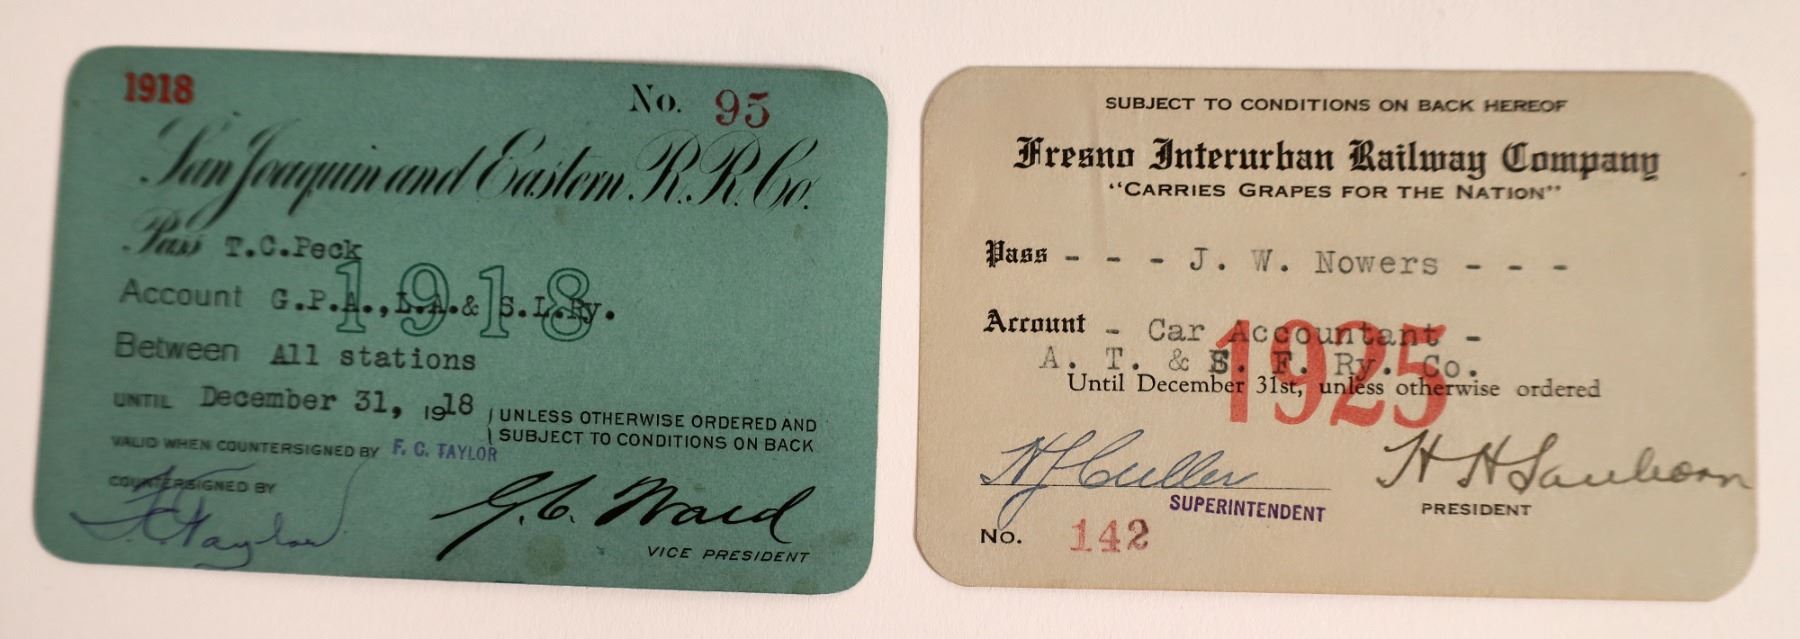 1918
No. 95
San Joaquin and Eastern R.R.Co.
Pass T.C.Peck
1918
Account G.P.A.,L.A.& S.L.Ry.
Between All stations
UNTIL December 31, 1918
UNLESS OTHERWISE ORDERED AND
SUBJECT TO CONDITIONS ON BACK
VALID WHEN COUNTERSIGNED BY F. C. TAYLOR
COUNTERSIGNED BY
F. C. Taylor
G. C. Ward
VICE PRESIDENT
SUBJECT TO CONDITIONS ON BACK HEREOF
Fresno Interurban Railway Company
"CARRIES GRAPES FOR THE NATION"
Pass - - - J. W. Nowers - - -
Account - Car Accountant -
A. T. & S. F. Ry. Co.
1925
Until December 31st, unless otherwise ordered
H H Sanborn
SUPERINTENDENT
PRESIDENT
No. 142